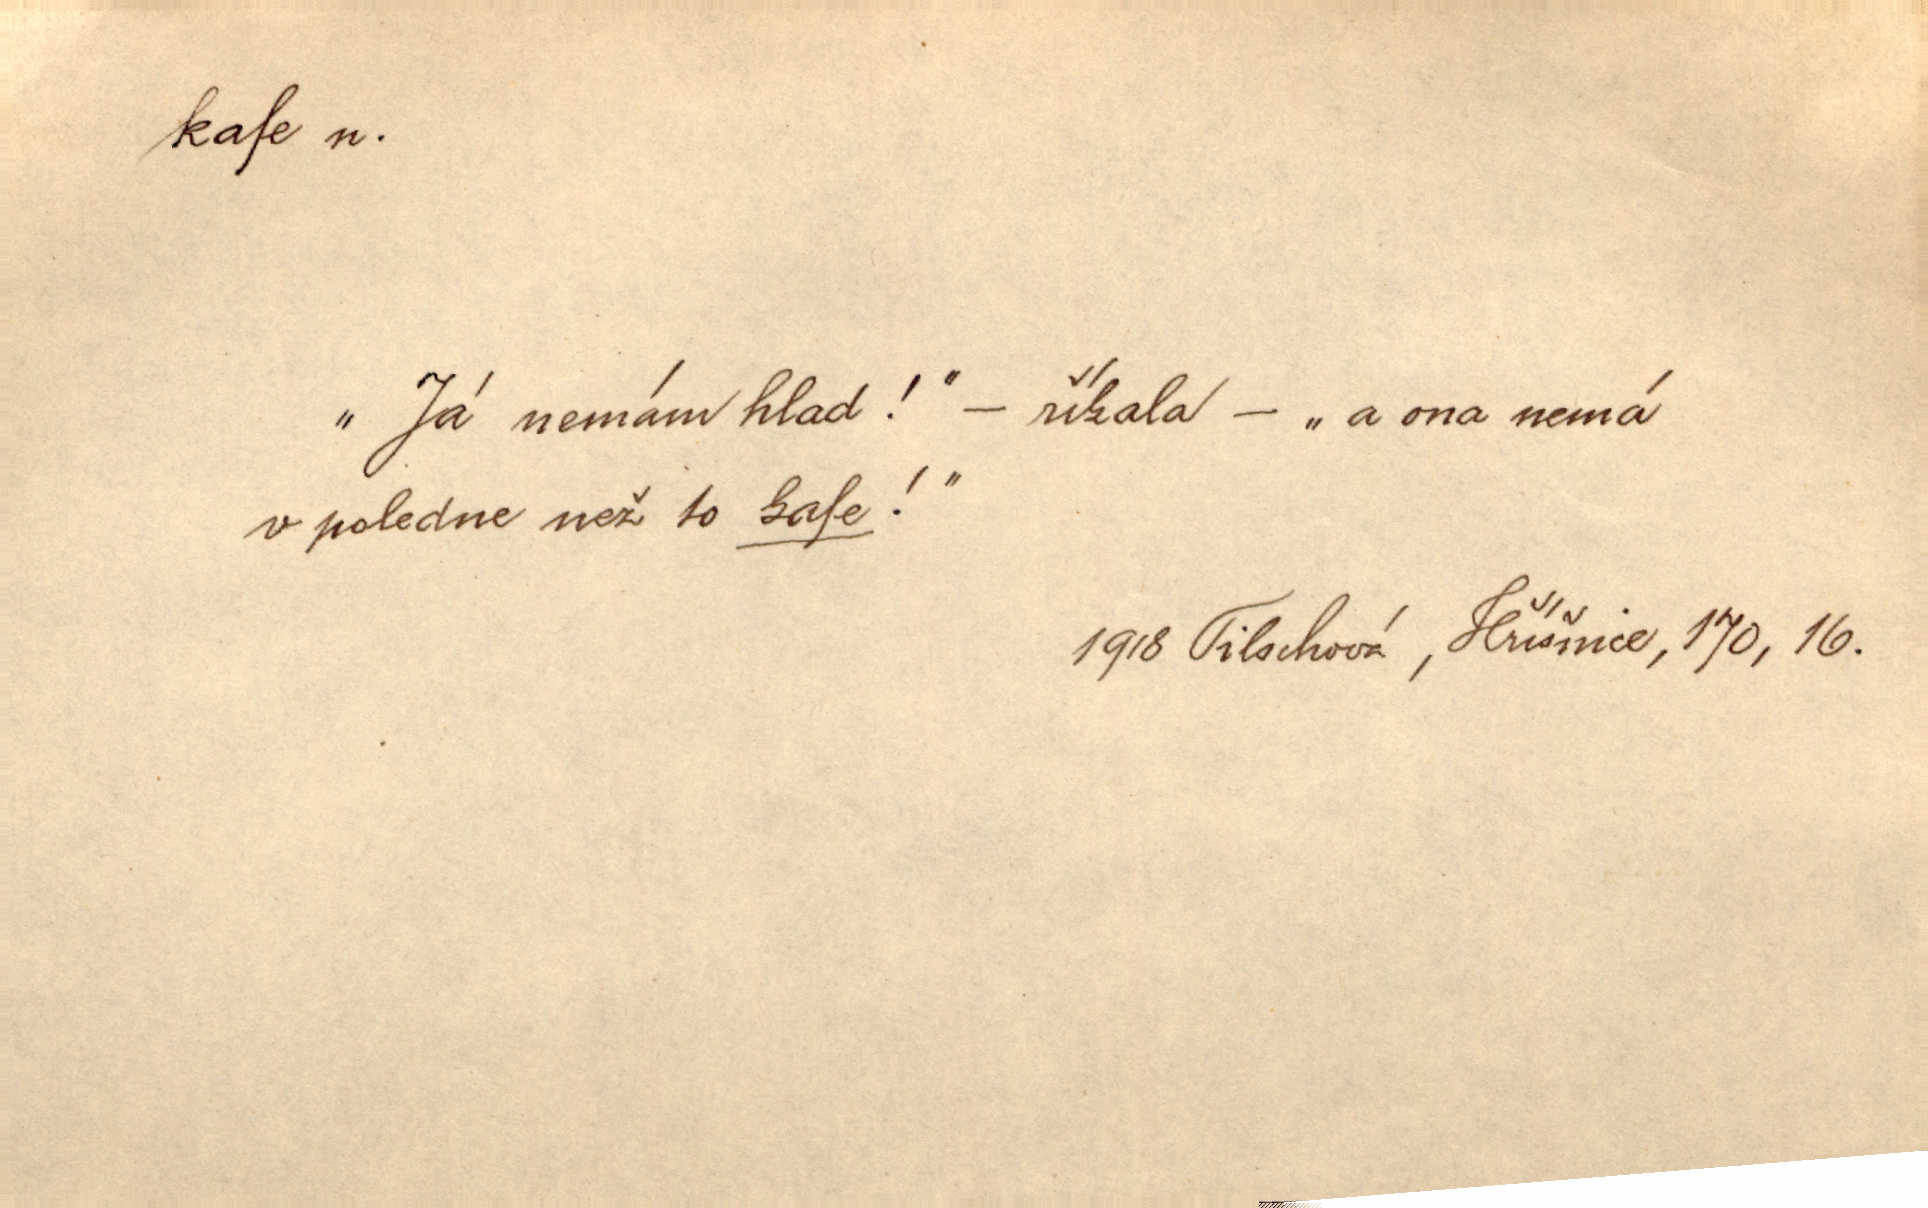 kafe n.
„Já nemám hlad!" – říkala – „a ona nemá
v poledne než to kafe!"
1918 Tilschová, Hříšnice, 170, 16.